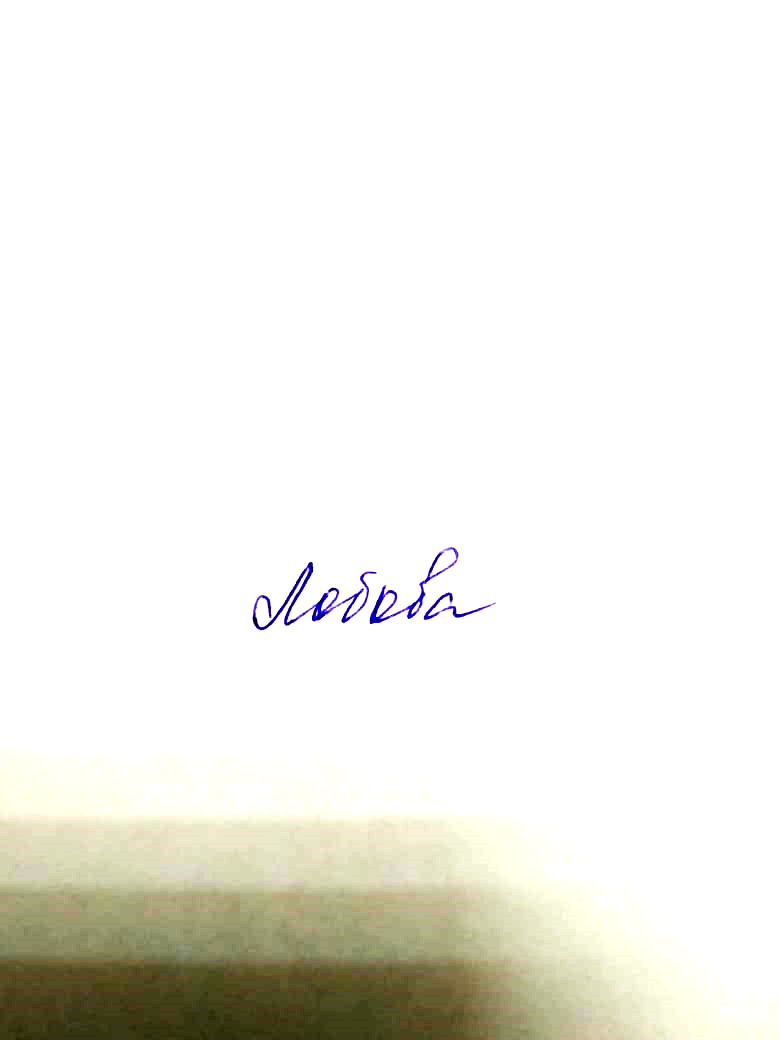 Лобова